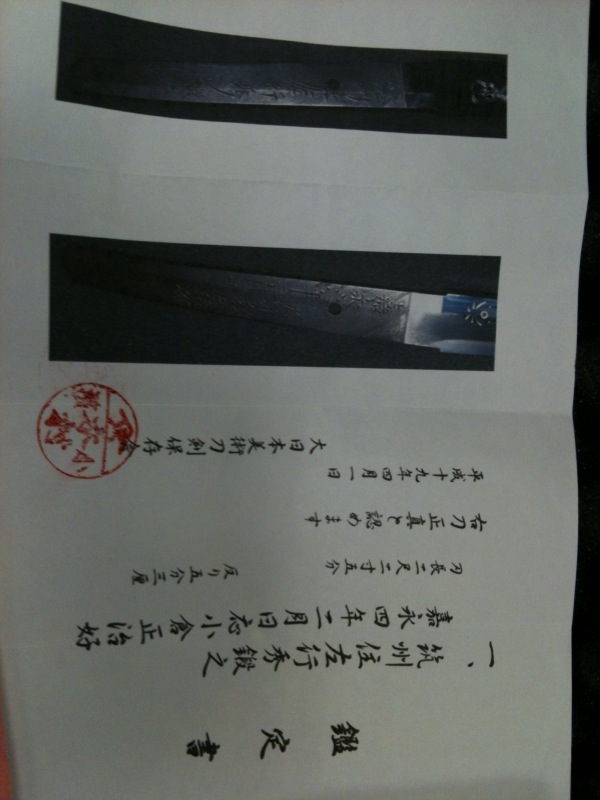 鑑定書
一、筑州住左行秀鍛之
嘉永四年二月日応小倉正治好
刃長二尺二寸五分 反り五分三厘
右刀正真と認めます
平成十九年四月一日
大日本美術刀剣保存会